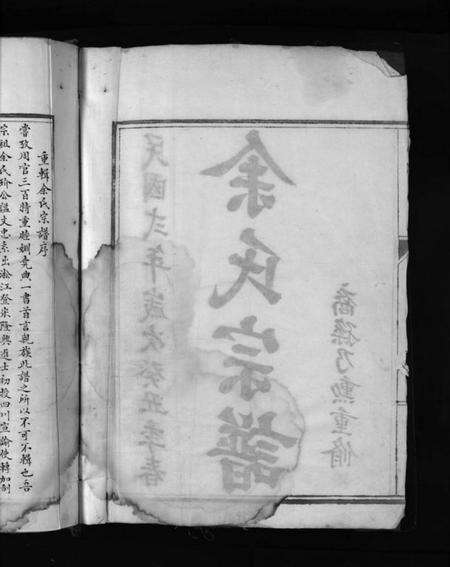 民國弍年歲次癸丑季春
余氏宗譜
裔孫乃勳重脩
重輯余氏宗譜序
嘗攷周官三百特重睦婣堯典一書首言親族此譜之所以不可不輯也吾
宗祖余氏玠公諡文忠系出淞江登宋隆興進士初授四川宣諭使轉加制